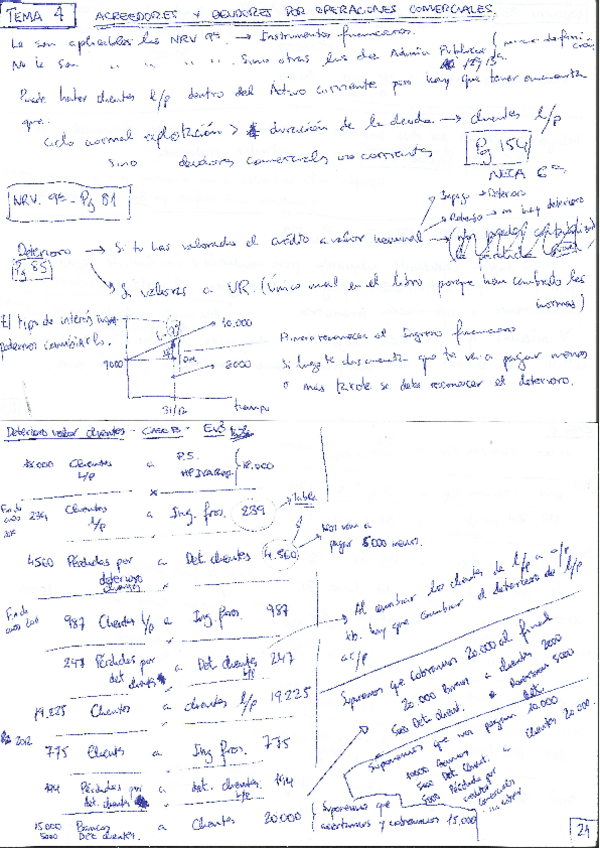 TEMA 4 ACREEDORES Y DEUDORES POR OPERACIONES COMERCIALES
Le son aplicables las NRV 9ª. → Instrumentos financieros.
No le son " " " " . Sino otras las de Admin Públicas
Puede haber clientes l/p dentro del Activo corriente pero hay que tener en cuenta
que.
Ciclo normal explotación > duración de la deuda → clientes l/p
Sino deudores comerciales no corrientes
Pg 154
NECA 6ª
NRV. 9ª - Pg 81
Impago → Deterioro
Retraso → no hay deterioro
Deterioro → Si tu has valorado el crédito a valor nominal
Pg 85
Si valoras a VR. (Único mal en el libro porque han cambiado las
normas)
El tipo de interés
podemos cambiarlo.
10.000
9000
8000
31/12
tiempo
Primero reconoces el Ingreso financiero
Si luego te das cuenta que te va a pagar menos
o más tarde se debe reconocer el deterioro.
Deterioro valor clientes - CASO B -
18.000 Clientes l/p a P.S.
HP IVA REP 18.000
Fin de año
239 Clientes l/p a Ing. fros. 239
Tabla
4560 Pérdidas por deterioro clientes a Det. clientes 4.560
Nos van a
pagar 5000 menos.
Fin de año
987 Clientes l/p a Ing. fros. 987
247 Pérdidas por det. clientes a Det. clientes l/p 247
Al cambiar los clientes de l/p a c/p
tb. hay que cambiar el deterioro de l/p
a c/p
19.225 Clientes a clientes l/p 19.225
2012
775 Clients a Ing. fros. 775
194 Pérdidas por det. clientes a det. clientes 194
15000 Bancos
5000 Det. clientes. a Clientes 20.000
Suponemos que
acertamos y cobramos 15.000
Suponemos que cobramos 20.000 al final
20.000 Bancos a clientes 2000
5000 Det. client. a Reversión 5000
det.
Suponemos que nos pagan 10.000
10000 Bancos
5000 Det. Client. a Clientes 20.000
5000 Pérdida por
créditos
comerciales
24